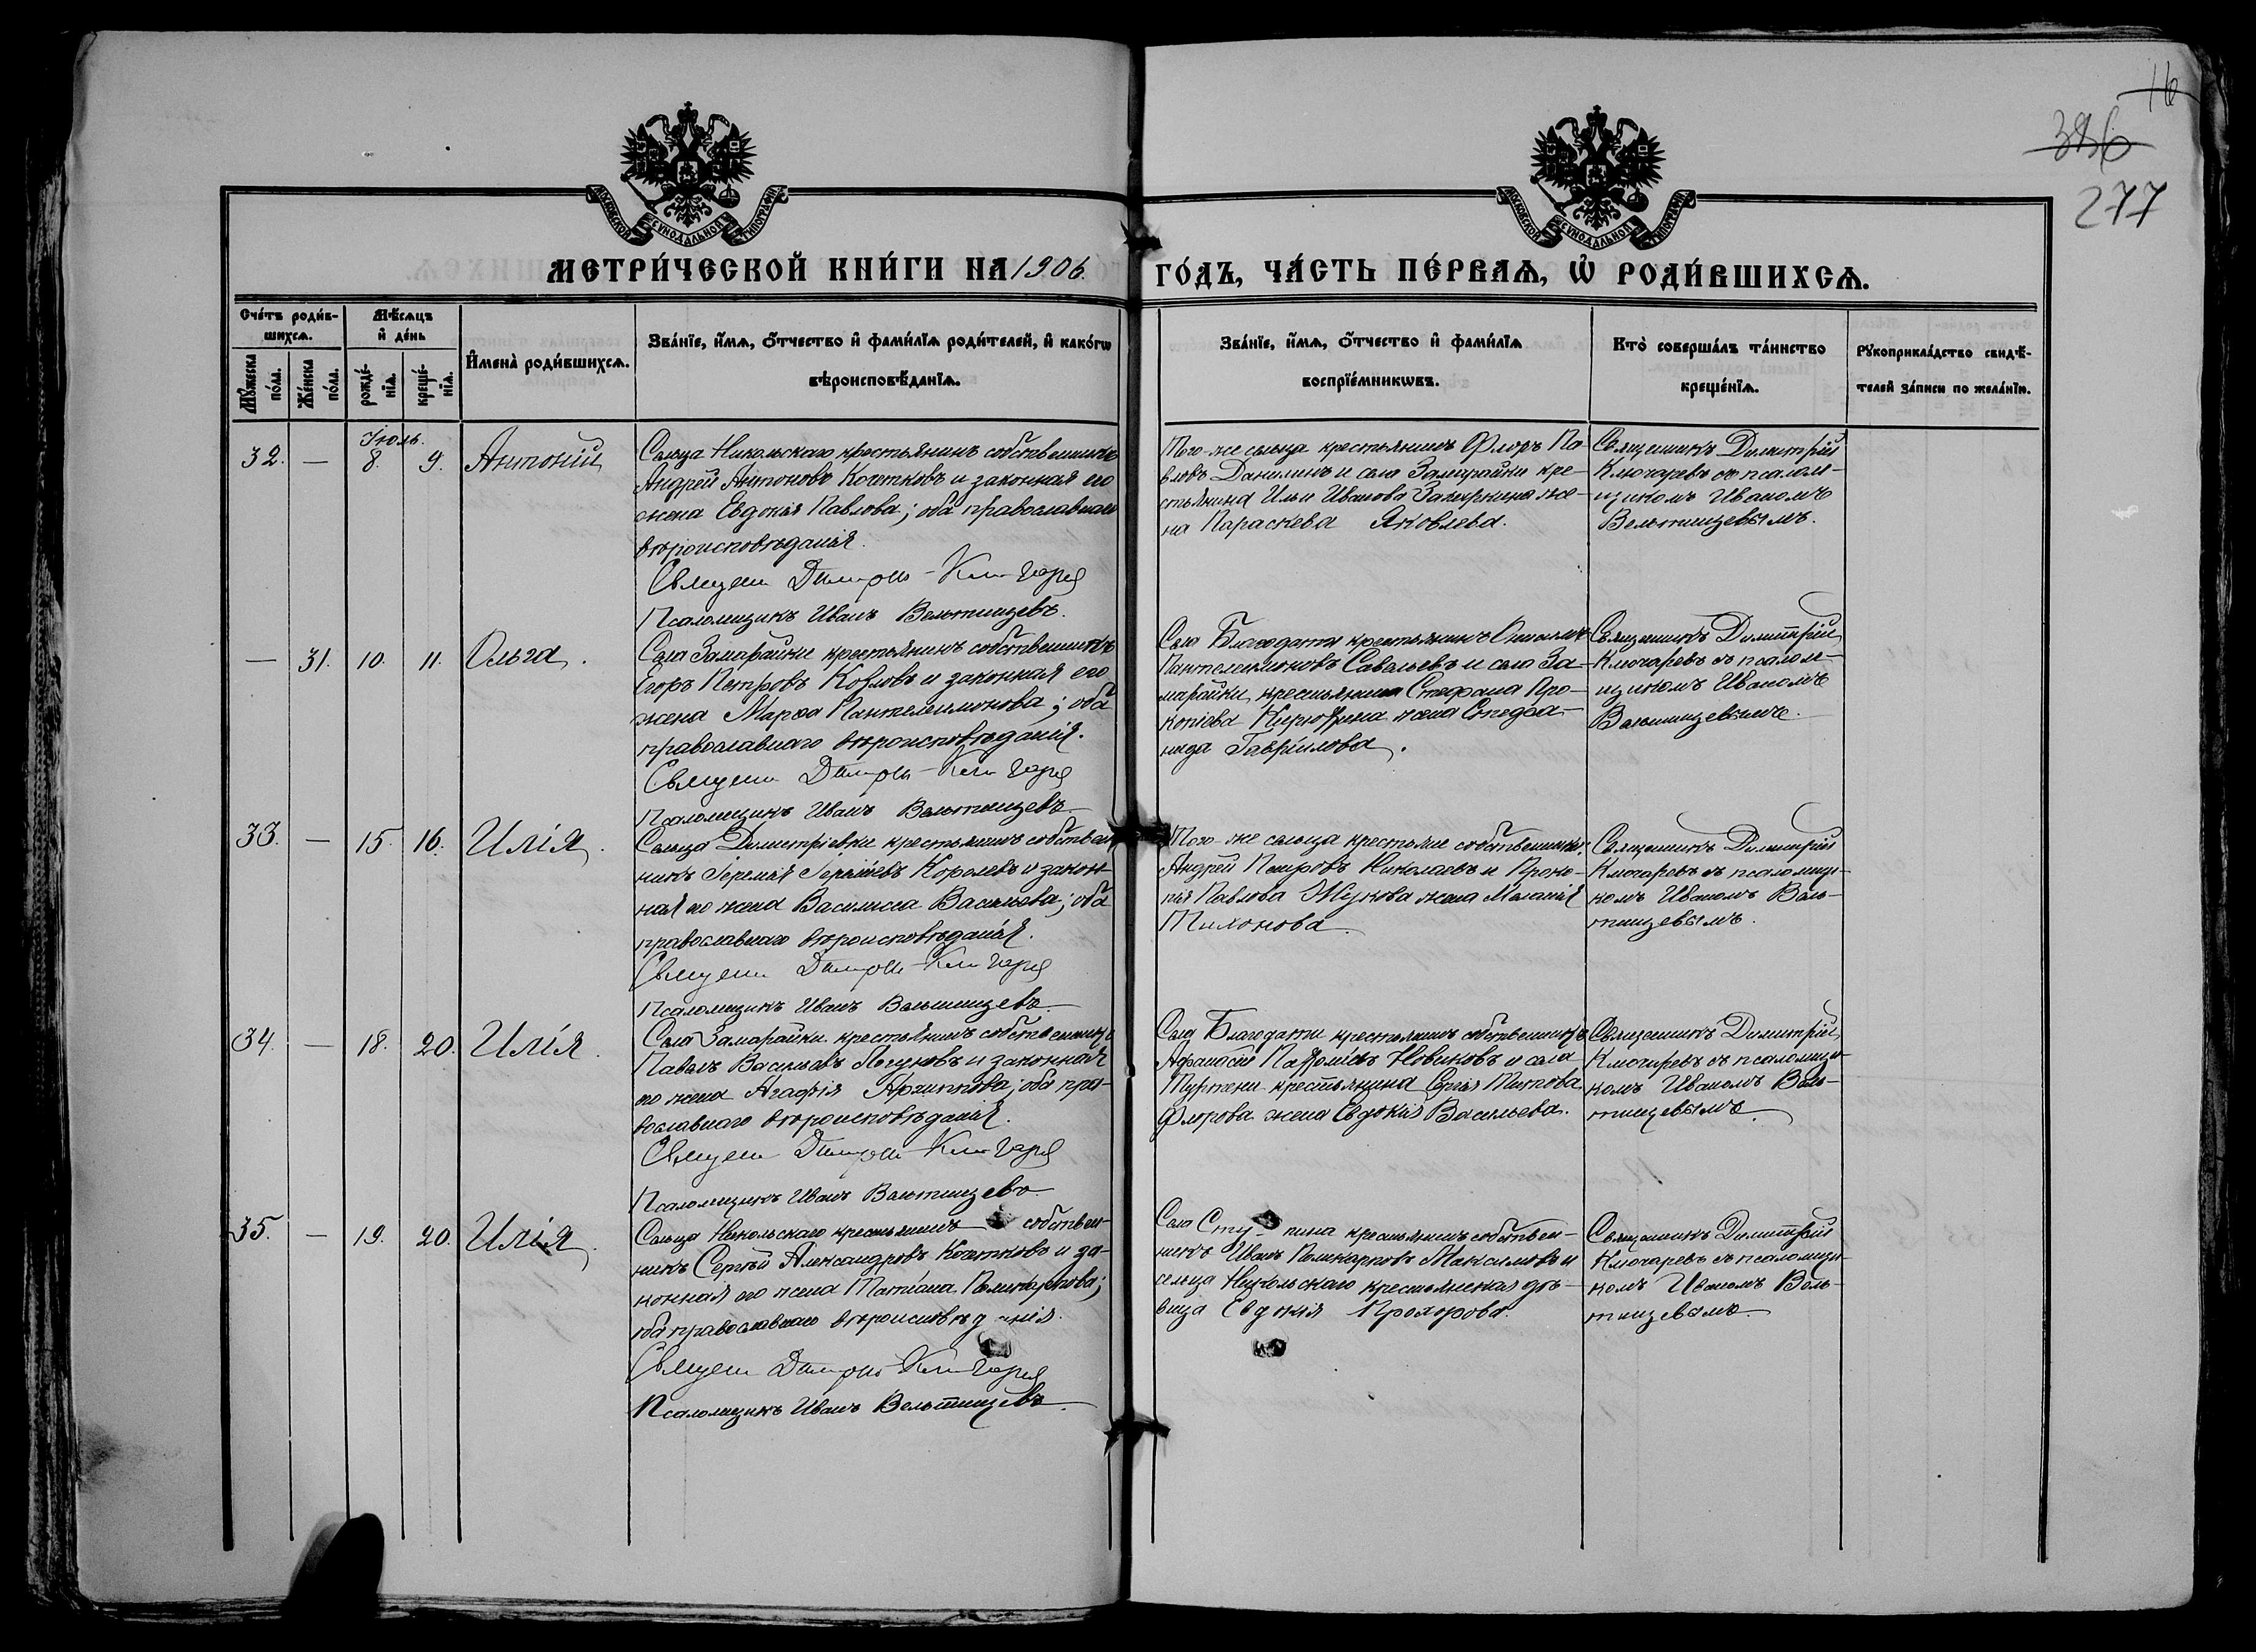 16
386
277
МОСКОВСКОЙ СѴНОДАЛЬНОЙ ТИПОГРАФІИ
МОСКОВСКОЙ СѴНОДАЛЬНОЙ ТИПОГРАФІИ
МЕТРИ́ЧЕСКОЙ КНИ́ГИ НА 1906.
ГО́ДЪ, ЧА́СТЬ ПЕ́РВАѦ, Ѡ҆ РОДИ́ВШИХСѦ.
Сче́тъ роди́в-
шихсѧ.
Мѣ́сѧцъ
и҆ де́нь
Мꙋ́жеска по́ла.
Же́нска по́ла.
рожде́-
нїѧ.
креще́-
нїѧ.
И҆мена̀ роди́вшихсѧ.
Зва́нїе, и҆́мѧ, ѻ҆́тчество и҆ фами́лїѧ роди́телей, и҆ како́гѡ
вѣроисповѣ́данїѧ.
Зва́нїе, и҆́мѧ, ѻ҆́тчество и҆ фами́лїѧ
воспрїе́мникѡвъ.
Кто̀ соверша́лъ та́инство
креще́нїѧ.
Рꙋкоприкла́дство свидѣ́-
телей за́писи по жела́нїю.
Іюль.
32. — 8. 9. Антоній
Сельца Никольскаго крестьянинъ собственникъ
Андрей Антоновъ Кочетковъ и законная его
жена Евдокія Павлова; оба православнаго
вѣроисповѣданія.
Священ Димитрій Ключарев
Псаломщикъ Иванъ Вельтищевъ.
Того-же сельца крестьянинъ Флоръ Па-
вловъ Данилинъ и села Замарайки кре-
стьянина Ильи Иванова же-
на Параскева Яковлева.
Священникъ Димитрій
Ключаревъ съ псалом-
щикомъ Иваномъ
Вельтищевымъ.
— 31. 10. 11. Ольга.
Села Замарайки крестьянинъ собственникъ
Егоръ Петровъ Козловъ и законная его
жена Марѳа Пантелеимонова; оба
православнаго вѣроисповѣданія.
Священ Димитрій Ключарев
Псаломщикъ Иванъ Вельтищевъ
Села Благодати крестьянинъ
Пантелеимоновъ Савельевъ и села За-
марайки крестьянина Стефана Про-
копіева жена Стефа-
нида Гавріилова.
Священникъ Димитрій
Ключаревъ съ псалом-
щикомъ Иваномъ
Вельтищевымъ.
33. — 15. 16. Илія.
Сельца Димитріевки крестьянинъ собствен-
никъ Іеремія Королевъ и закон-
ная его жена Василисса Васильева; оба
православнаго вѣроисповѣданія.
Священ Димитрій Ключарев
Псаломщикъ Иванъ Вельтищевъ
Того-же сельца крестьяне собственники:
Андрей Петровъ Николаевъ и Проко-
пія Павлова Жукова жена Меланія
Тихонова.
Священникъ Димитрій
Ключаревъ съ псаломщи-
комъ Иваномъ Вель-
тищевымъ.
34. — 18. 20. Илія.
Села Замарайки крестьянинъ собственникъ
Павелъ Васильевъ и законная
его жена Агафія Архиппова; оба пра-
вославнаго вѣроисповѣданія.
Священ Димитрій Ключарев
Псаломщикъ Иванъ Вельтищевъ.
Села Благодати крестьянинъ собственникъ
Афанасій Новиковъ и села
Туртени крестьянина Сергія Титова
Флорова жена Евдокія Васильева.
Священникъ Димитрій
Ключаревъ съ псаломщи-
комъ Иваномъ Вель-
тищевымъ.
35. — 19. 20. Илія.
Сельца Никольскаго крестьянинъ собствен-
никъ Сергѣй Александровъ Кочетковъ и за-
конная его жена Татіана Поликарпова;
оба православнаго вѣроисповѣданія.
Священ Димитрій Ключарев
Псаломщикъ Иванъ Вельтищевъ.
Села Ступина крестьянинъ собствен-
никъ Иванъ Поликарповъ Максимовъ и
сельца Никольскаго крестьянская дѣ-
вица Евдокія Прохорова.
Священникъ Димитрій
Ключаревъ съ псаломщи-
комъ Иваномъ Вель-
тищевымъ.